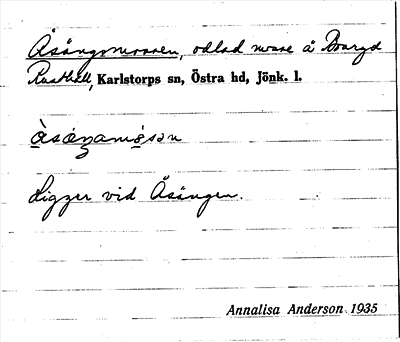 Åsängsmossen, odlad mosse å Borryd
Rusthåll, Karlstorps sn, Östra hd, Jönk. l.
Ligger vid Åsängen.
Annalisa Anderson 1935